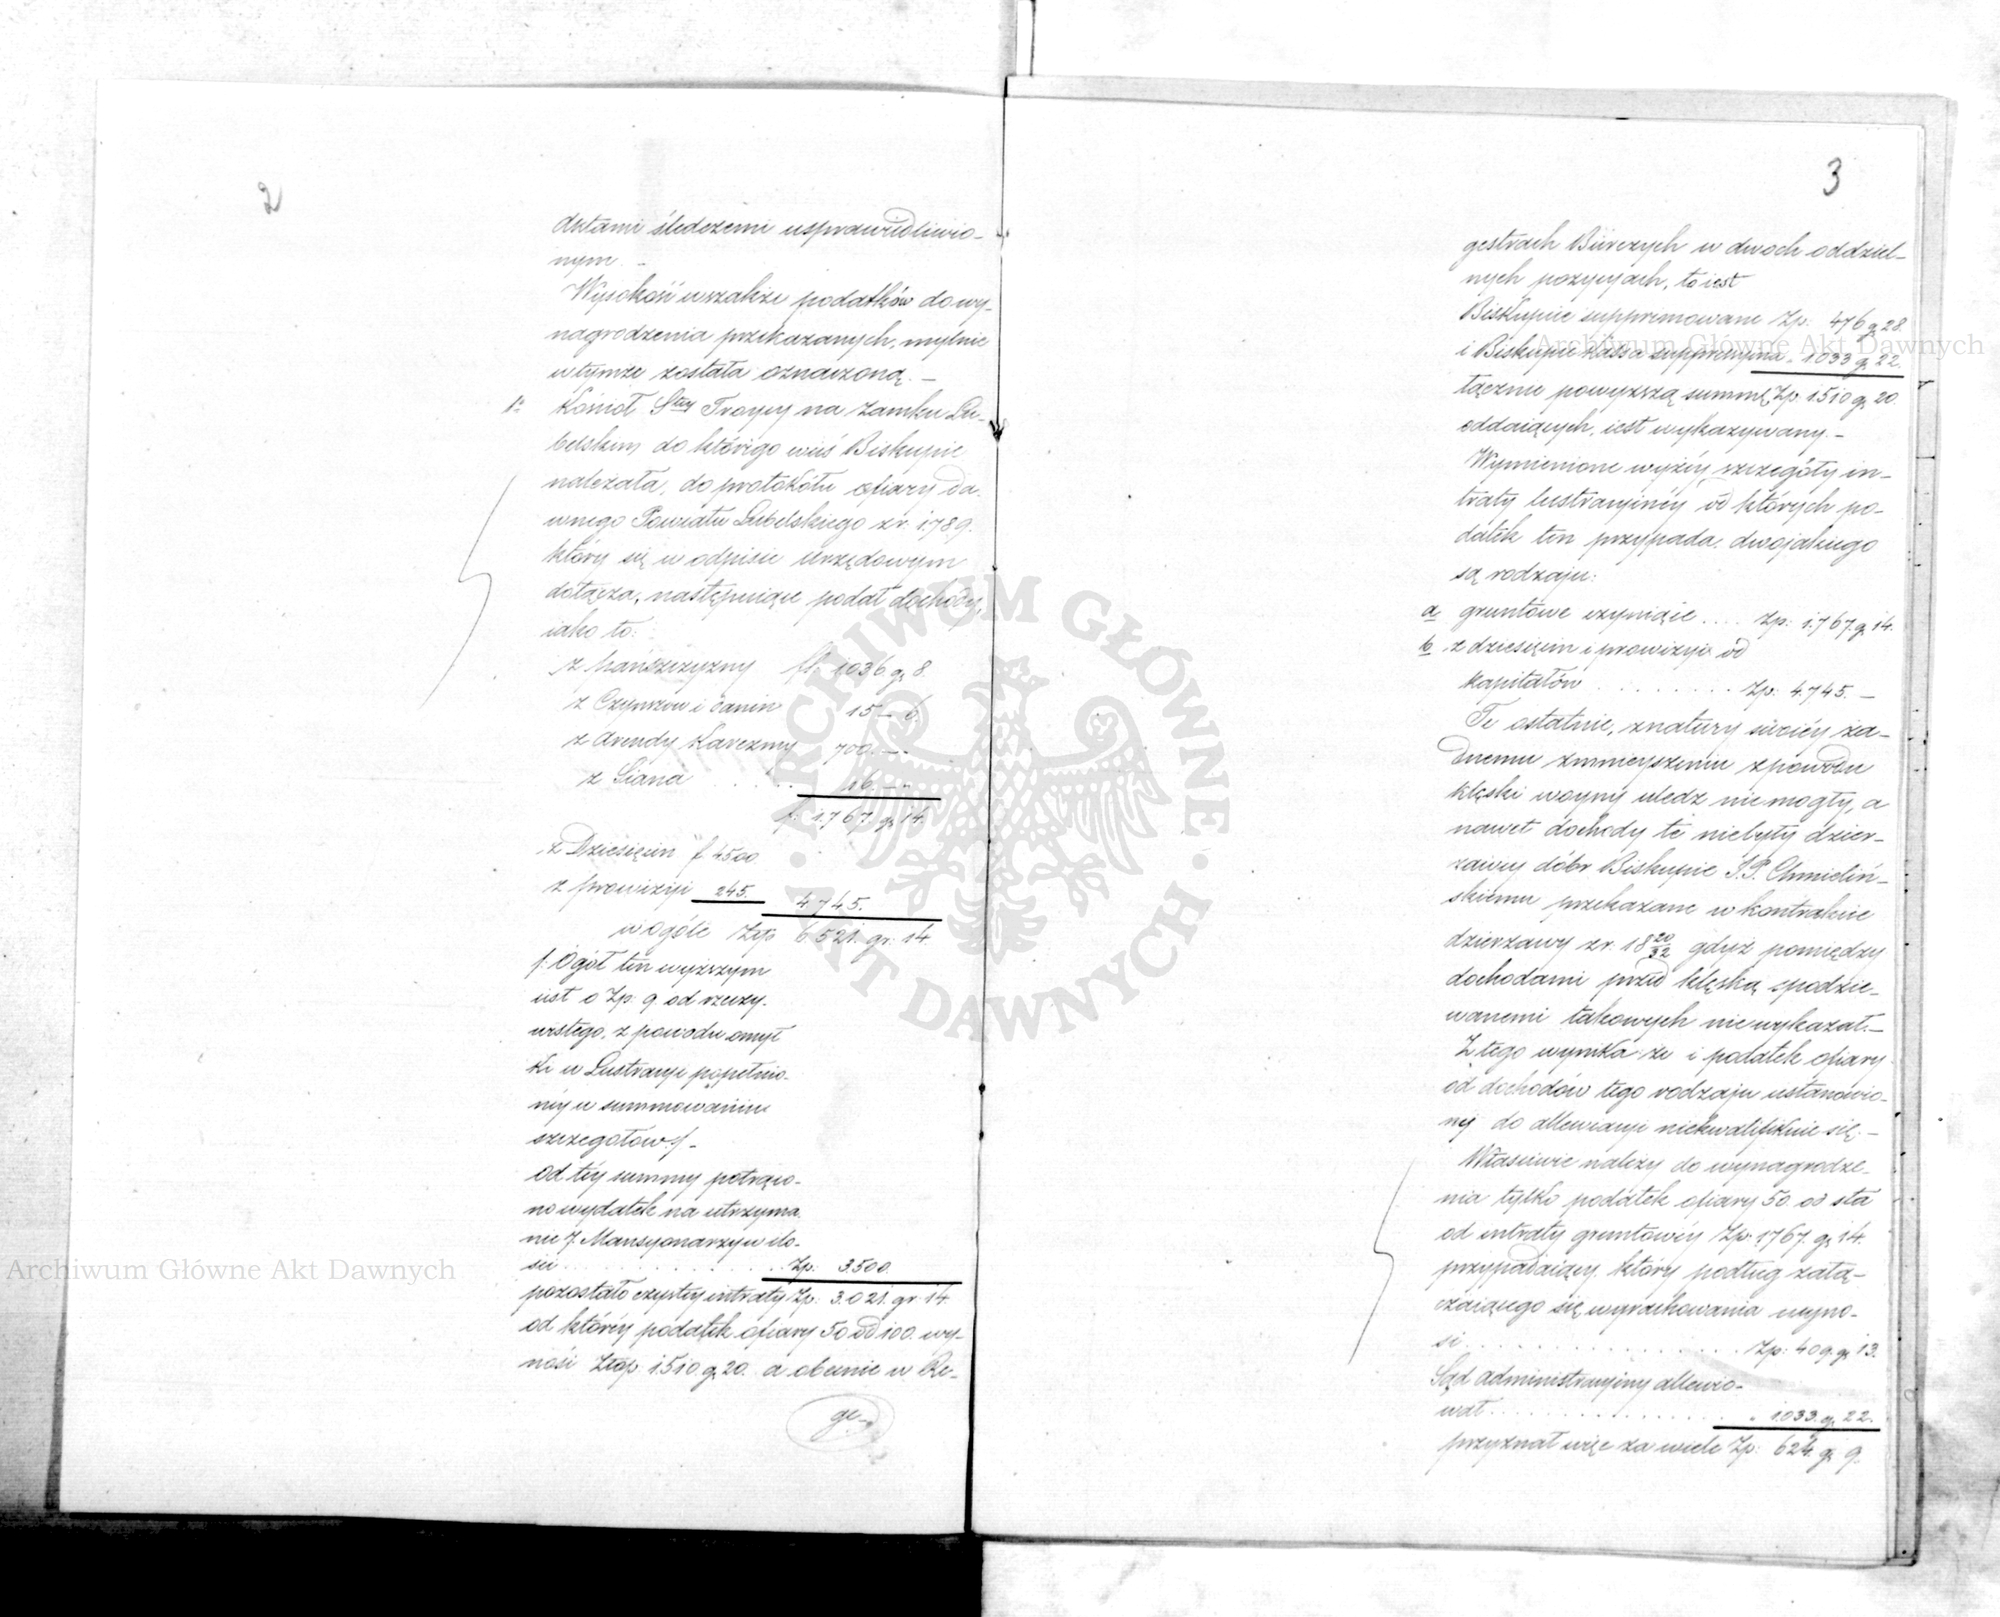 2
aktami śledczemi usprawiedliwio-
nym. -
Wysokość wszakże podatków do wy-
nagrodzenia przekazanych, mylnie
w tymże została oznaczoną. -
1. Kościół Stey Troycy na Zamku Lu-
belskim do którego wieś Biskupie
należała, do protokółu ofiary da-
wnego Powiatu Lubelskiego z r. 1789.
który się w odpisie urzędowym
dołącza, następuiące podał dochody,
iako to:
z Pańszczyzny fl: 1036. g. 8.
z Czynszow i danin 15 - 6.
z Arendy Karczmy 700. - -
z Siana . . . . 16. - -
f. 1.767. g. 14.
z Dziesięcin f 4500
z prowizyi 245. 4.745.
w ogóle Złp 6 521. gr. 14.
/: Ogół ten wyższym
iest o Zp: 9. od rzeczy-
wistego, z powodu omył
ki w Lustracyi popełnio-
néy w summowaniu
szczegołow :/ -
od téy summy potrąco-
no wydatek na utrzyma
nie 7. Mansyonarzy w ilo-
ści . . . . . . . . Zp: 3.500.
pozostało czystey intraty Zp: 3.021. gr. 14.
od któréy podatek ofiary 50 od 100. wy-
nosi Złp. 1.510 g. 20. a obecnie w Re-
ge-
3
gestrach Biórczych w dwoch oddziel-
nych pozycyach, to iest
Biskupie supprimowane Zp: 476 g. 28.
i Biskupie Kassa suppressyina " 1033 g. 22.
łącznie powyższą summę Zp. 1510 g. 20.
oddaiących, iest wykazywany. -
Wymienione wyżéy szczegóły in-
traty lustracyinéy od których po-
datek ten przypada, dwojakiego
są rodzaju:
a, gruntowe czyniące . . . . Zp: 1.767. g. 14.
b, z dziesięcin i prowizyi od
kapitałów . . . . . . . . Zp: 4.745. -
Te ostatnie, z natury swoiéy ża-
dnemu zmnieyszeniu z powodu
klęski woyny uledz nie mogły, a
nawet dochody te niebyły dzier-
żawcy dóbr Biskupie J.P. Chmieliń-
skiemu przekazane w kontrakcie
dzierżawy z r. 18 20/32 gdyż pomiędzy
dochodami przed klęską spodzie-
wanemi takowych nie wykazał. -
Z tego wynika że i podatek ofiary
od dochodów tego rodzaju ustanowio-
ny do allewiacyi niekwalifikuie się. -
Właściwie należy do wynagrodze-
nia tylko podatek ofiary 50. od sta
od intraty gruntowéy Zp: 1767. g. 14.
przypadaiący, który podług załą-
czaiącego się wyrachowania wyno-
si . . . . . . . . . . . . . . . . Zp: 409. g. 13.
Sąd administracyiny allewio-
wał . . . . . . . . . . . . . . . . " 1.033. g. 22.
przyznał więc za wiele Zp: 624. g. 9.
Archiwum Główne Akt Dawnych
Archiwum Główne Akt Dawnych
ARCHIWUM GŁÓWNE · AKT DAWNYCH ·